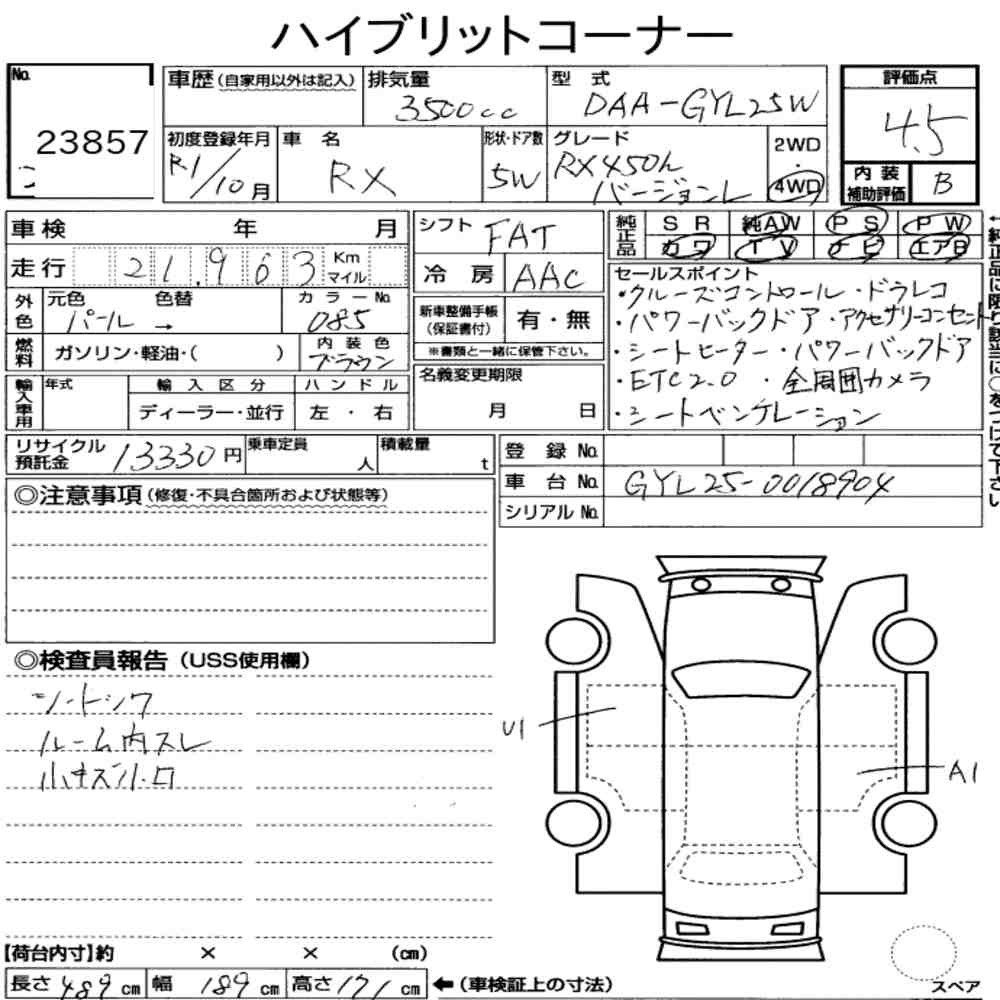 ハイブリットコーナー
No. 23857
車歴(自家用以外は記入) 排気量 3500cc 型 式 DAA-GYL25W
初度登録年月 R1/10月 車 名 RX 形状・ドア数 5W グレード RX450h バージョンL 2WD・4WD
評価点 4.5
内装補助評価 B
車検 年 月 シフト FAT 純正品 SR 純AW PS PW
カワ TV ナビ エアB
走行 21,963 Km マイル 冷房 AAC
外色 元色 パール 色替 → カラーNo. 085
新車整備手帳(保証書付) 有・無
※書類と一緒に保管下さい。
燃料 ガソリン・軽油・( ) 内装色 ブラウン
輸入車用 年式 輸入区分 ハンドル
ディーラー・並行 左・右
名義変更期限 月 日
セールスポイント
・クルーズコントロール・ドラレコ
・パワーバックドア・アクセサリーコンセント
・シートヒーター・パワーバックドア
・ETC2.0 ・全周囲カメラ
・シートベンチレーション
←純正品に限り該当に○をつけて下さい
リサイクル預託金 13330円 乗車定員 人 積載量 t
登録No.
車台No. GYL25-0018904
シリアルNo.
◎注意事項(修復・不具合箇所および状態等)
◎検査員報告(USS使用欄)
シートシワ
ルーム内スレ
小キズ小凹
U1
A1
【荷台内寸】約 × × (cm)
長さ489cm 幅 189cm 高さ171cm ←(車検証上の寸法)
スペア